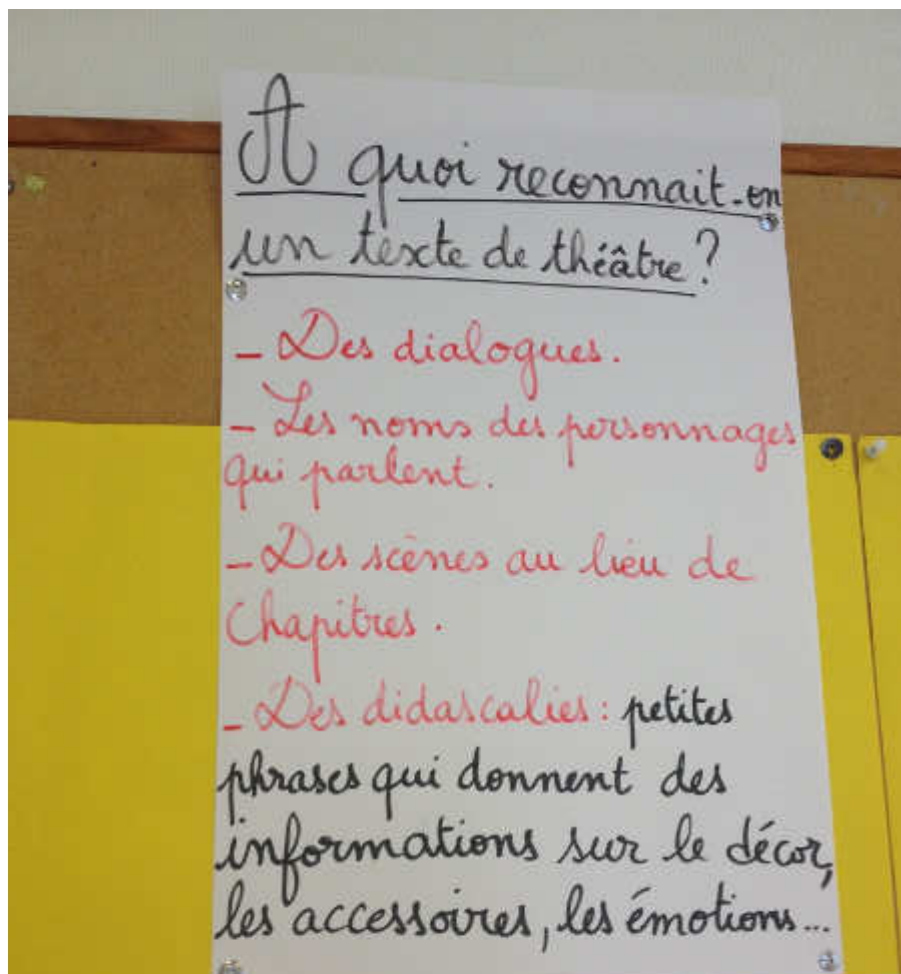 A quoi reconnait-on
un texte de théâtre ?
- Des dialogues.
- Les noms des personnages
qui parlent.
- Des scènes au lieu de
Chapitres.
- Des didascalies : petites
phrases qui donnent des
informations sur le décor,
les accessoires, les émotions...